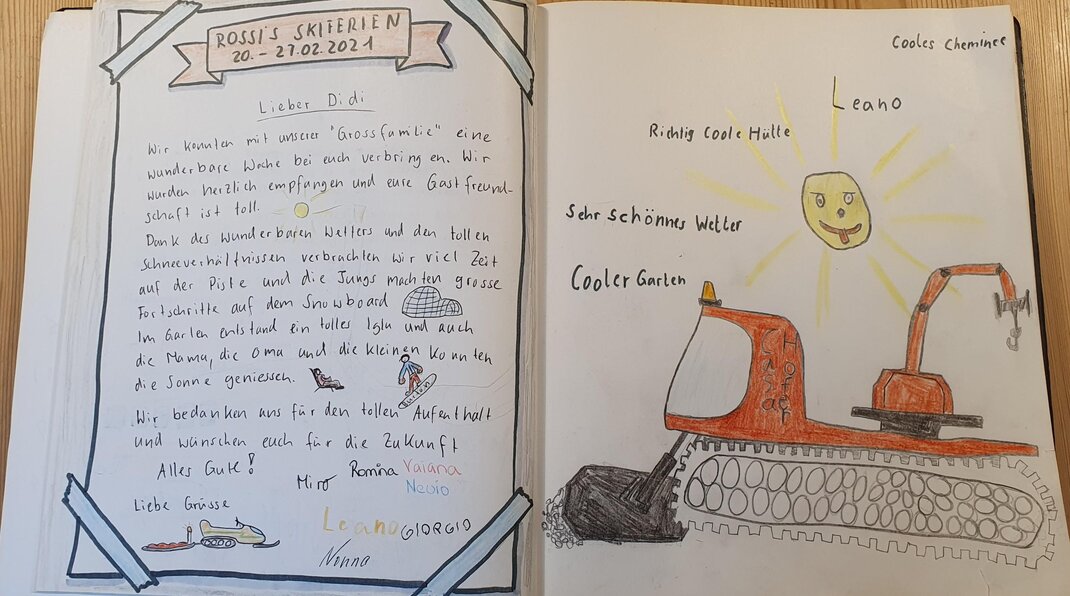 ROSSI'S SKIFERIEN
20. - 27.02.2021
Lieber Didi
Wir konnten mit unserer "Grossfamilie" eine
wunderbare Woche bei euch verbringen. Wir
wurden herzlich empfangen und eure Gastfreund-
schaft ist toll.
Dank des wunderbaren Wetters und den tollen
Schneeverhältnissen verbrachten wir viel Zeit
auf der Piste und die Jungs machten grosse
Fortschritte auf dem Snowboard
Im Garten entstand ein tolles Iglu und auch
die Mama, die Oma und die kleinen konnten
die Sonne geniessen.
Wir bedanken uns für den tollen Aufenthalt
und wünschen euch für die Zukunft
Alles Gute!
Miro Romina Vaiana
Nevio
Liebe Grüsse
Leano GIORGIO
Nonna
Cooles Cheminee
Leano
Richtig Coole Hütte
Sehr schönnes Wetter
Cooler Garten
Hofer